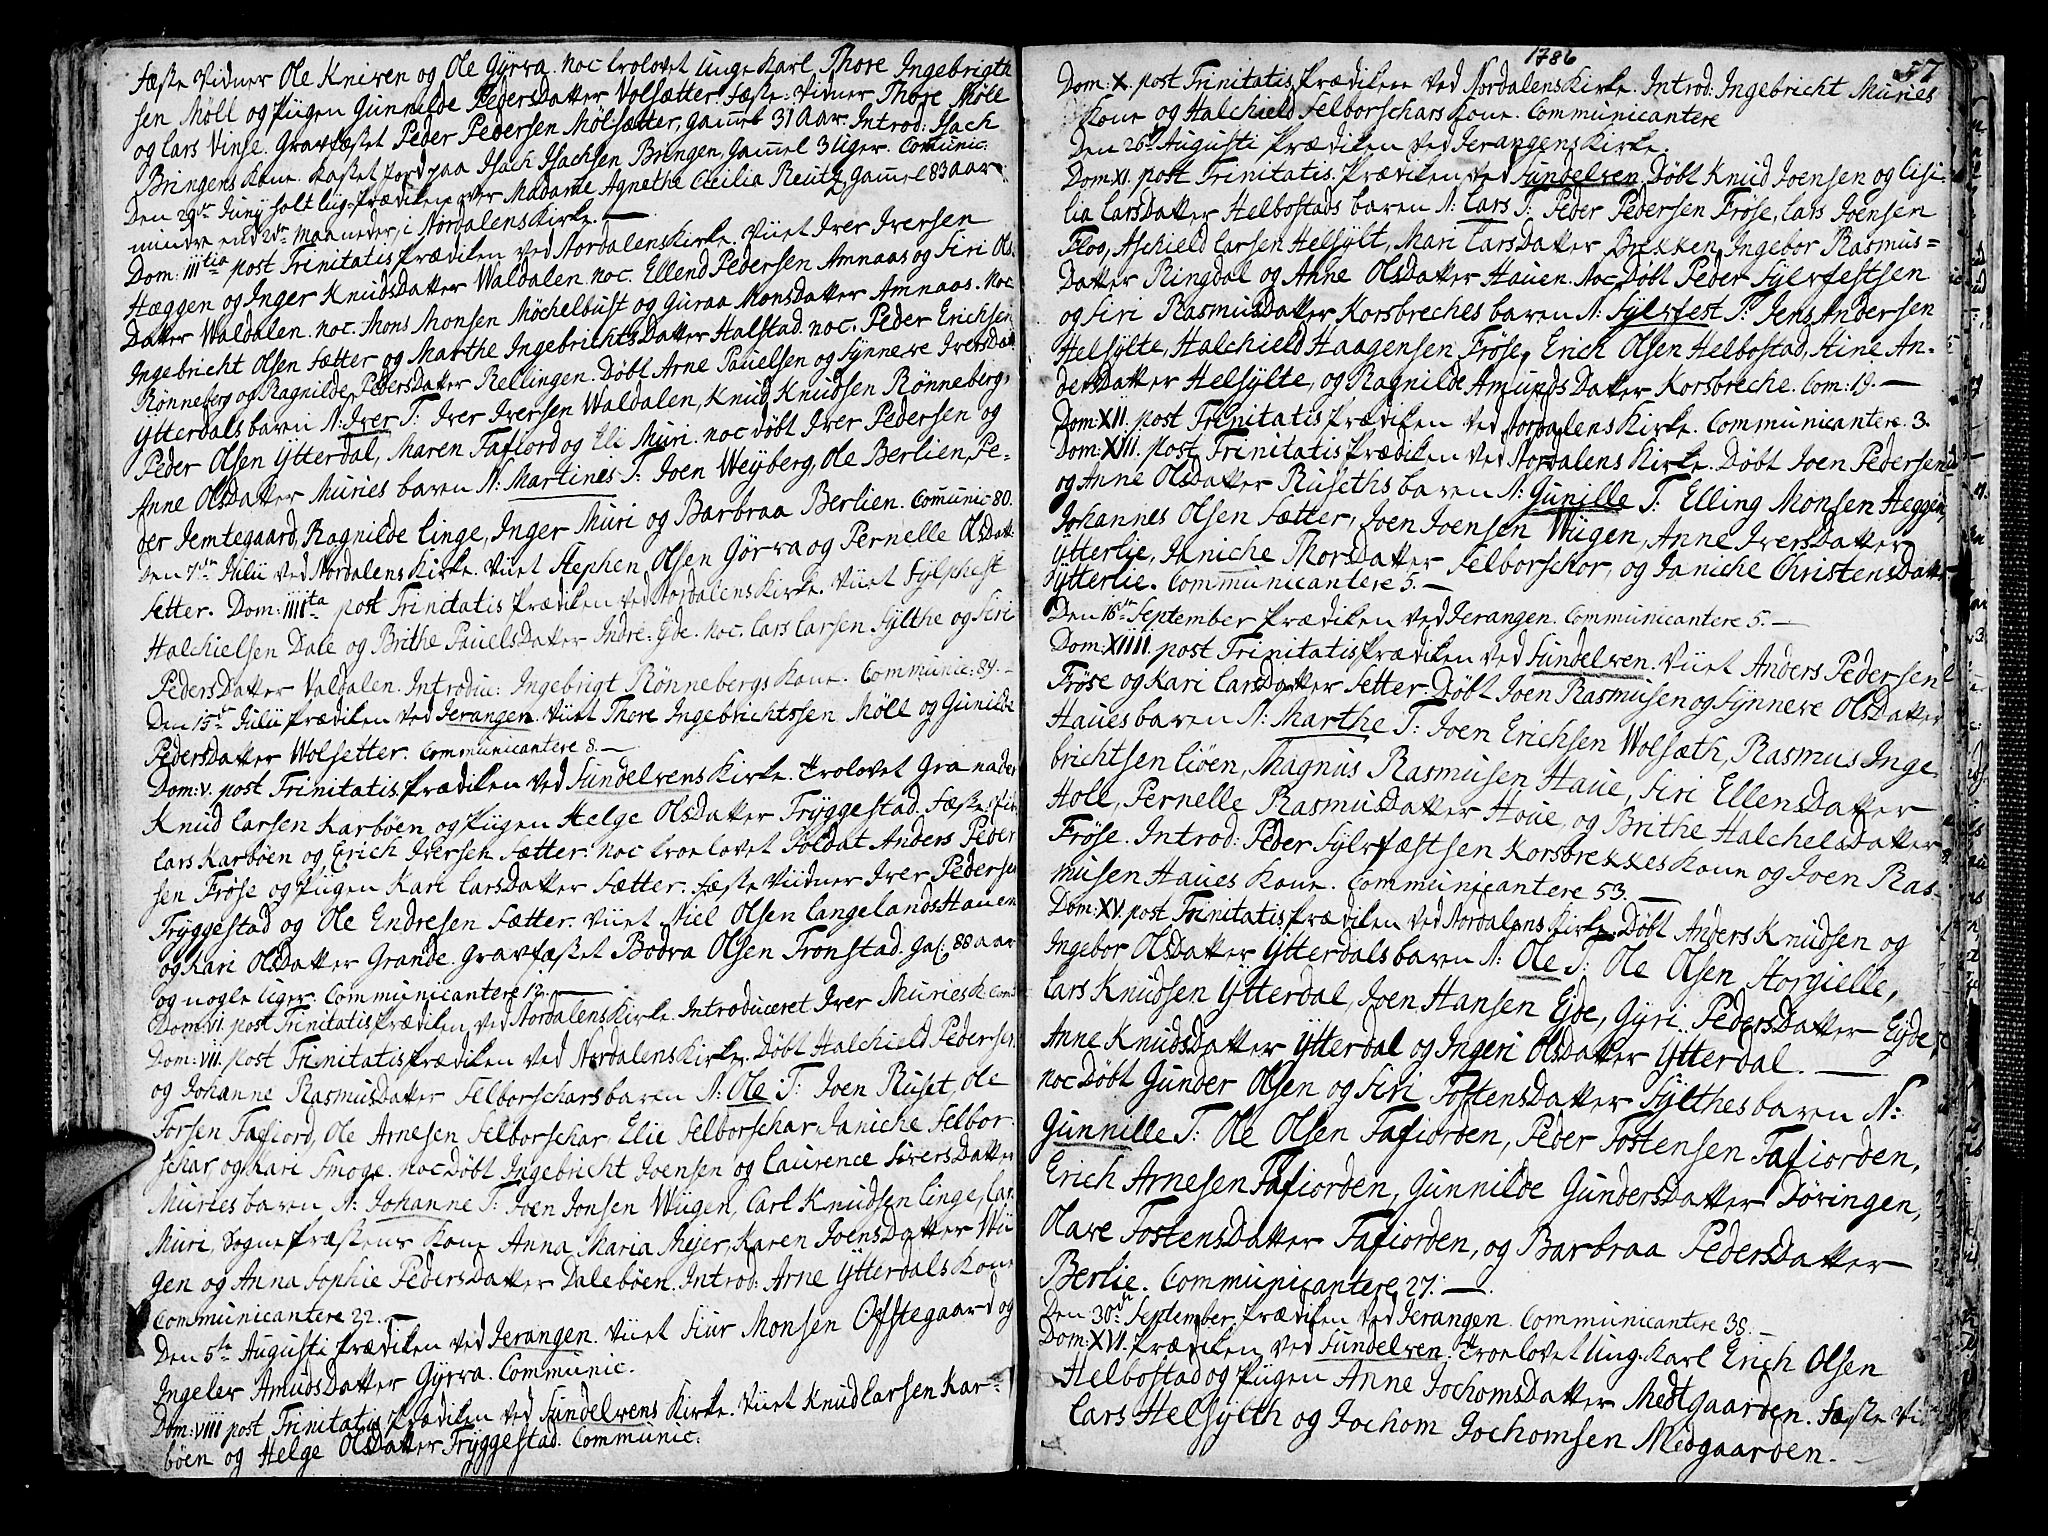 Fæste Vidner Ole Kniven og Ole Gÿrra. noc trolovet Unge Karl Thore Ingebrigth
sen Möll og Pigen Gunnilde Pedersdatter Volsætter. Fæste: Vidner Thore Möll
og Lars Vinse. Gravfæstet Peder Pedersen Mölsætter, gamel 31 Aar. Introd: Isach
Bringens Kone. Kastet Jord paa Isach Isachsen Bringen, Gamel 3 Uger. Comunic:
Den 29de Junÿ holt Liig Prædiken over Madame Agnethe Cecilia Reutz gamel 83 aar
mindre end 2de Maaneder, i Nordalens Kirke. —
Dom: IIItia post Trinitatis Prædiken ved Nordalens Kirke. Viiet Iver Iversen
Hæggen og Inger Knudsdatter Waldalen. noc. Ellend Pedersen Amnaas og Siri Ols
Datter Waldalen. noc. Mons Monsen Möchelbust og Guraa Monsdatter Amnaas. noc
Ingebricht Olsen Sætter og Marthe Ingebrichts Datter Halstad. noc. Peder Erichsen
Rönneberg og Ragnilde Pedersdatter Rellingen. Döbt Arne Pauelsen og Sÿnneve Iversdatt
Ytterdals baren N: Iver T: Iver Iversen Waldalen, Knud Knudsen Rönneberg,
Peder Olsen Ytterdal, Maren Tafiord og Eli Muri. noc döbt Iver Pedersen og
Anne Olsdatter Muries baren N: Martines T: Joen Weÿberg, Ole Berlien, Pe-
der Jemtegaard, Ragnilde Linge, Inger Muri og Barbraa Berlien. Comunic: 80.
Den 7de Julii ved Nordalens Kirke. Viiet Stephen Olsen Görra og Pernelle Olsdatt:
Setter. Dom: IIIIta post Trinitatis Prædiken ved Nordalens Kirke. Viiet Sÿlphest
Halchielsen Dale og Brithe Pauels Datter Indre Eide. noc. Lars Larsen Sÿlthe og Siri
Peders Datter Valdalen. Introdu: Ingebrigt Rönnebergs Kone. Communic: 89. —
Den 15de Julii Prædiken ved Ierangen. Viiet Thore Ingebrichtssen Möll og Gunilde
Pedersdatter Wolsetter. Communicantere 8. —
Dom: V. post Trinitatis Prædiken ved Sundelvens Kirke. Trolovet Granader
Knud Larsen Karböen og Pigen Helge Olsdatter Trÿggestad. Fæste: Vid:
Lars Karböen og Erich Iversen Sætter. noc troelovet Soldat Anders Peder
sen Fröse og Pigen Kari Larsdatter Sætter. Fæste Viidner Iver Pedersen
Trÿggestad og Ole Endresen Sætter. Viiet Niel Olsen Langelands Hauen
og Kari Olsdatter Grande. Gravfæstet Bodva Olsen Tronstad. Gal: 88 aar
og nogle Uger. Communicantere 12. —
Dom: VI. post Trinitatis Prædiken ved Nordalens Kirke. Introduceret Iver Muries K. Com
Dom: VII. post Trinitatis Prædiken ved Nordalens Kirke. Döbt Halchield Pedersen
og Johanne Rasmusdatter Selborschars baren N: Ole T: Joen Ruset, Ole
Torsen Tafiord, Ole Arnesen Selborschar, Elie Selborschar, Janiche Selbor-
schar og Kari Smoge. noc Döbt Ingebricht Joensen og Laurence Siversdatter
Muries baren N: Johanne T: Joen Jonsen Wiigen, Carl Knudsen Linge, Lars
Muri, Sogne Præstens Kone Anna Maria Meÿer, Karen Joensdatter Wii
gen og Anna Sophie Pedersdatter Daleböen. Introd: Arne Ytterdals Kone
Communicantere 22. —
Den 5te Augusti Prædiken ved Ierangen. Viiet Siur Monsen Ofstegaard og
Ingeler Amuds Datter Gÿrra. Communic.
Dom: VIII post Trinitatis Prædiken ved Sundelvens Kirke. Viiet Knud Larsen Kar-
böen og Helge Olsdatter Trÿggestad. Communic:
1786
57
Dom: X. post Trinitatis Prædiken ved Nordalens Kirke. Introd: Ingebricht Muries
Kone og Halchield Selborschars Kone. Communicantere
Den 26de Augusti Prædiken ved Ierangens Kirke.
Dom: XI. post Trinitatis. Prædiken ved Sundelven. Döbt Knud Joensen og Cisi-
lia Larsdatter Helbostads baren N: Lars T: Peder Pedersen Fröse, Lars Joensen
Floo, Aschield Larsen Helsÿlt, Mari Larsdatter Brekken, Ingebor Rasmus=
Datter Ringdal og Anne Olsdatter Hauen. Noc Döbt Peder Sÿlvfestsen
og Siri Rasmusdatter Korsbreches baren N: Sÿlvfest T: Jens Andersen
Helsÿlte, Halchield Haagensen Fröse, Erich Olsen Helbostad, Stine An-
dersdatter Helsÿlte, og Ragnilde Amunds Datter Korsbreche. Com: 19. —
Dom: XII. post Trinitatis Prædiken ved Nordalens Kirke. Communicantere. 3.
Dom: XIII. post Trinitatis Prædiken ved Nordalens Kirke. Döbt Joen Pedersen
og Anne Olsdatter Ruseths baren N: Gunille T: Elling Monsen Heggen,
Johannes Olsen Sætter, Joen Joensen Wiigen, Anne Iversdatter
Ytterlie, Janiche Thorsdatter Selborschor, og Janiche Christensdatter
Ytterlie. Communicantere 5. —
Den 16de September Prædiken ved Ierangen. Communicantere 5. —
Dom: XIIII. post Trinitatis Prædiken ved Sundelven. Viiet Anders Pedersen
Fröse og Kari Larsdatter Setter. Döbt Joen Rasmusen og Sÿnneve Olsdatter
Haues baren N: Marthe T: Joen Erichsen Wolsæth, Rasmus Inge
brichtsen Liöen, Magnus Rasmusen Haue, Siri Ellensdatter
Holl, Pernelle Rasmusdatter Houe, og Brithe Halchelsdatter
Fröse. Introd: Peder Sÿlvfæstsen Korsbrekkes Kone og Joen Ras-
musen Haues Kone. Communicantere 53. —
Dom: XV. post Trinitatis Prædiken ved Nordalens Kirke. Döbt Anders Knudsen og
Ingebor Olsdatter Ytterdals baren N: Ole T: Ole Olsen Storgielle,
Lars Knudsen Ytterdal, Joen Hansen Eÿde, Gÿri Pedersdatter Eÿde,
Anne Knudsdatter Ytterdal og Ingeri Olsdatter Ytterdal. —
noc Döbt Gunder Olsen og Siri Tostensdatter Sÿlthes baren N:
Gunnille T: Ole Olsen Tafiorden, Peder Tostensen Tafiorden,
Erich Arnesen Tafiorden, Gunnilde Gundersdatter Döringen,
Olave Tostensdatter Tafiorden, og Barbraa Pedersdatter
Berlie. Communicantere 27. —
Den 30de September Prædiken ved Ierangen. Communicantere 38. —
Dom: XVI. Prædiken ved Sundelven. Troelovet Ung-Karl Erich Olsen
Helbostad og Pigen Anne Jochomsdatter Medtgaarden. Fæste Vid
Lars Helsÿlth og Jochom Jochomsen Medgaarden. —